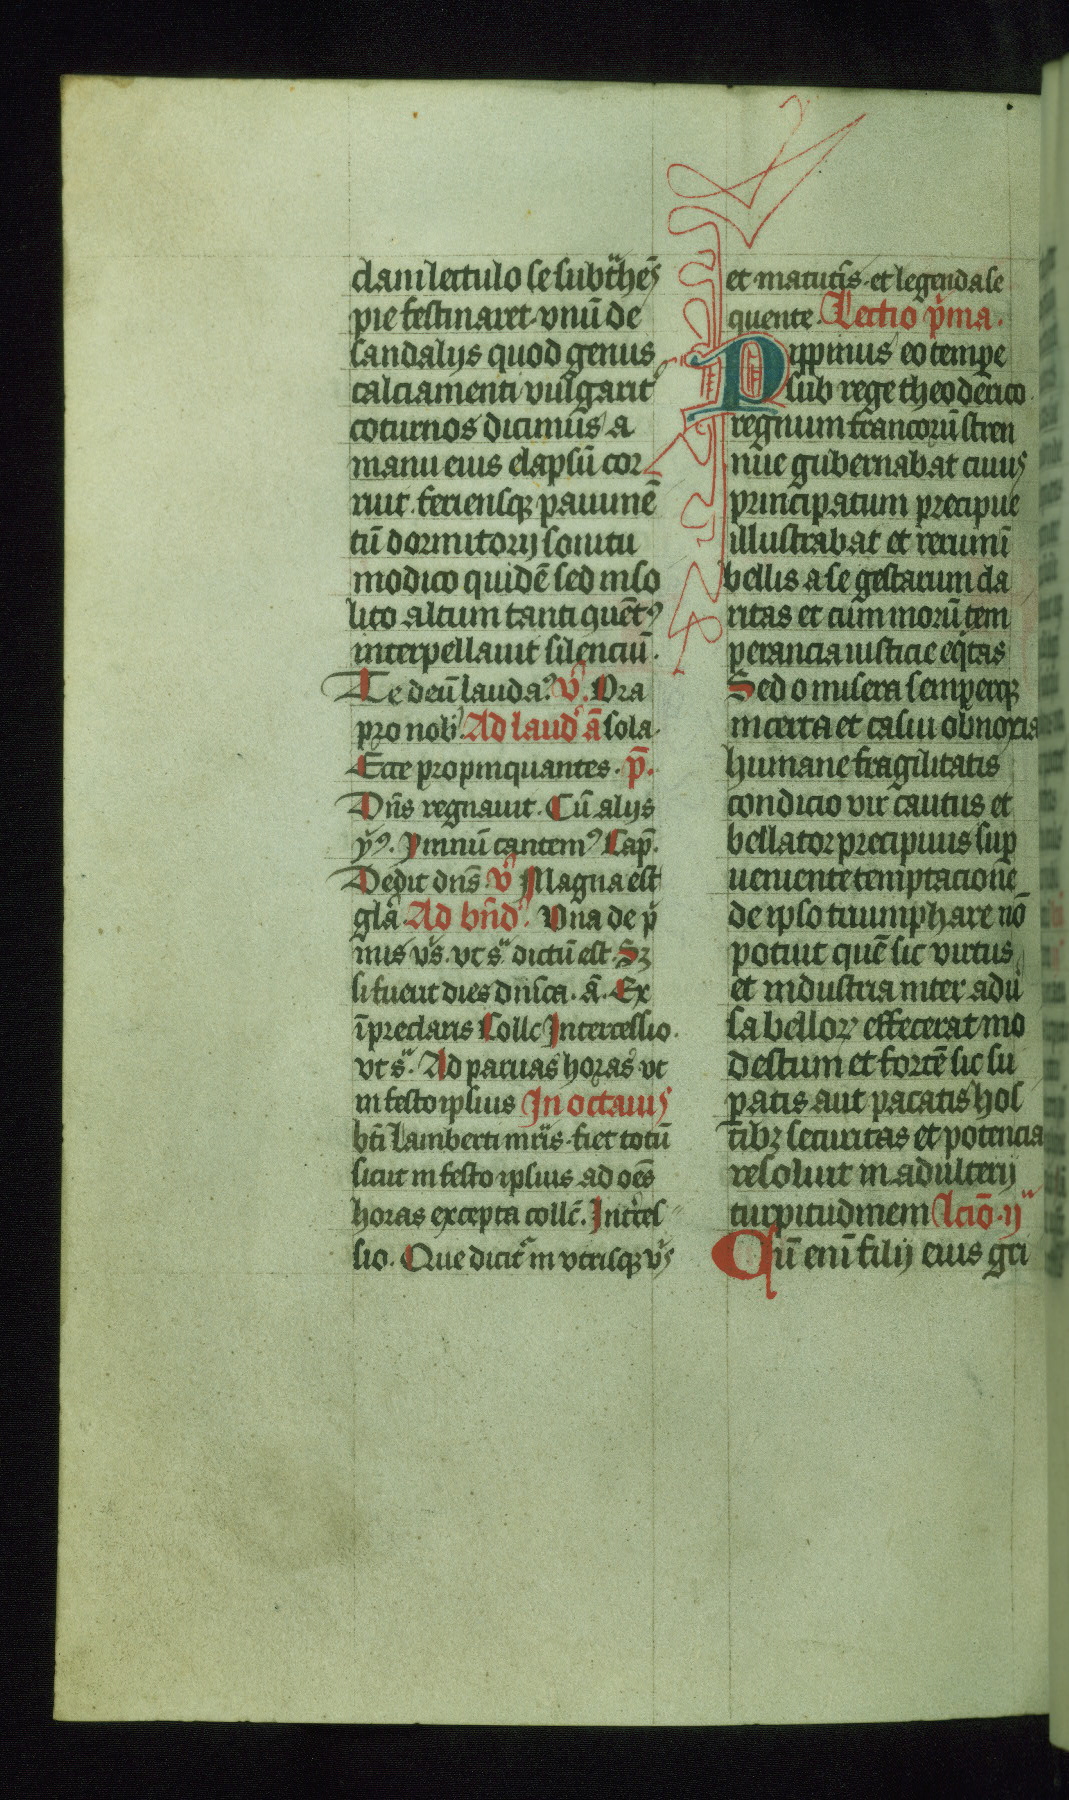 clam lectulo se subt͛hēs
pie festinaret. vnū de
sandalijs quod genus
calciamenti vulgarit͛
coturnos dicimus a
manu eius elapsū cor
ruit. feriensqꝫ pauimē
tū dormitorij sonitu
modico quidē sed inso
lito altum tanti quēt⁹
interpellauit silenciū.
Te deū lauda.⁹ v̾. Ora
pro nob̾. Ad laud̾ añ sola.
Ecce propinquantes. p̄.
Dn̄s regnauit. Cū alijs
ym̄⁹. Ymnū cantem⁹ Cap̄.
Dedit dn̄s. v̾ Magna est
gl̄a Ad bn̄d̾. Vna de pͥ
mis v̾s. vt sᵃ dictū est. Sꝫ
si fuerit dies dn̄ica. ā. Ex
īpreclaris Coll̄c Intercessio.
vt sᵃ. Ad paruas horas vt
in festo ipsius In octauis
bt̄i Lamberti mr̄is. fiet totū
sicut in festo ipsius ad oēs
horas excepta coll̄c. Int͛ces
sio. Que dicit͛ in vtrisqꝫ v̾s
et matutīs. et legenda se
quente. Lectio pͥma.
Pippinus eo temꝑe
sub rege theoderico
regnum francorū stren
nue gubernabat cuius
principatum precipue
illustrabat et rerum ī
bellis a se gestarum cla
ritas et cum morū tem
perancia iusticie eq̇tas
Sed o misera semꝑqꝫ
incerta et casui obnoxia
humane fragilitatis
condicio vir cautus et
bellator precipuus suꝑ
ueniente temptacione
de ipso triumphare nō
potuit quē sic virtus
et industria inter adu͛
sa belloꝝ effecerat mo
destum et fortē sic su
ꝑatis aut pacatis hos
tibꝫ securitas et potencia
resoluit in adulterij
turpitudinem Lcīo. ij
Cū enī filij eius gri